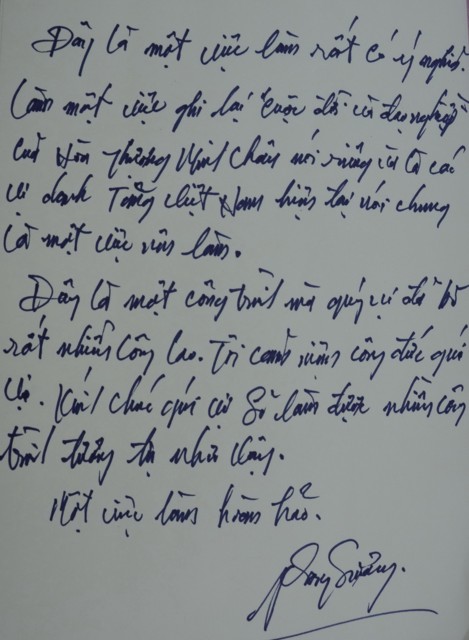 Đây là một việc làm rất có ý nghĩa.
Làm một việc ghi lại "cuộc đời và đạo nghiệp"
của Hòa Thượng Minh Châu nói riêng và là các
vị danh Tăng Việt Nam hiện tại nói chung
là một việc nên làm.
Đây là một công trình mà quý vị đã bỏ
rất nhiều công lao. Tôi cảm niệm công đức quý
vị. Kính chúc quý vị sẽ làm được nhiều công
trình tương tự như vậy.
Một việc làm hoàn hảo.